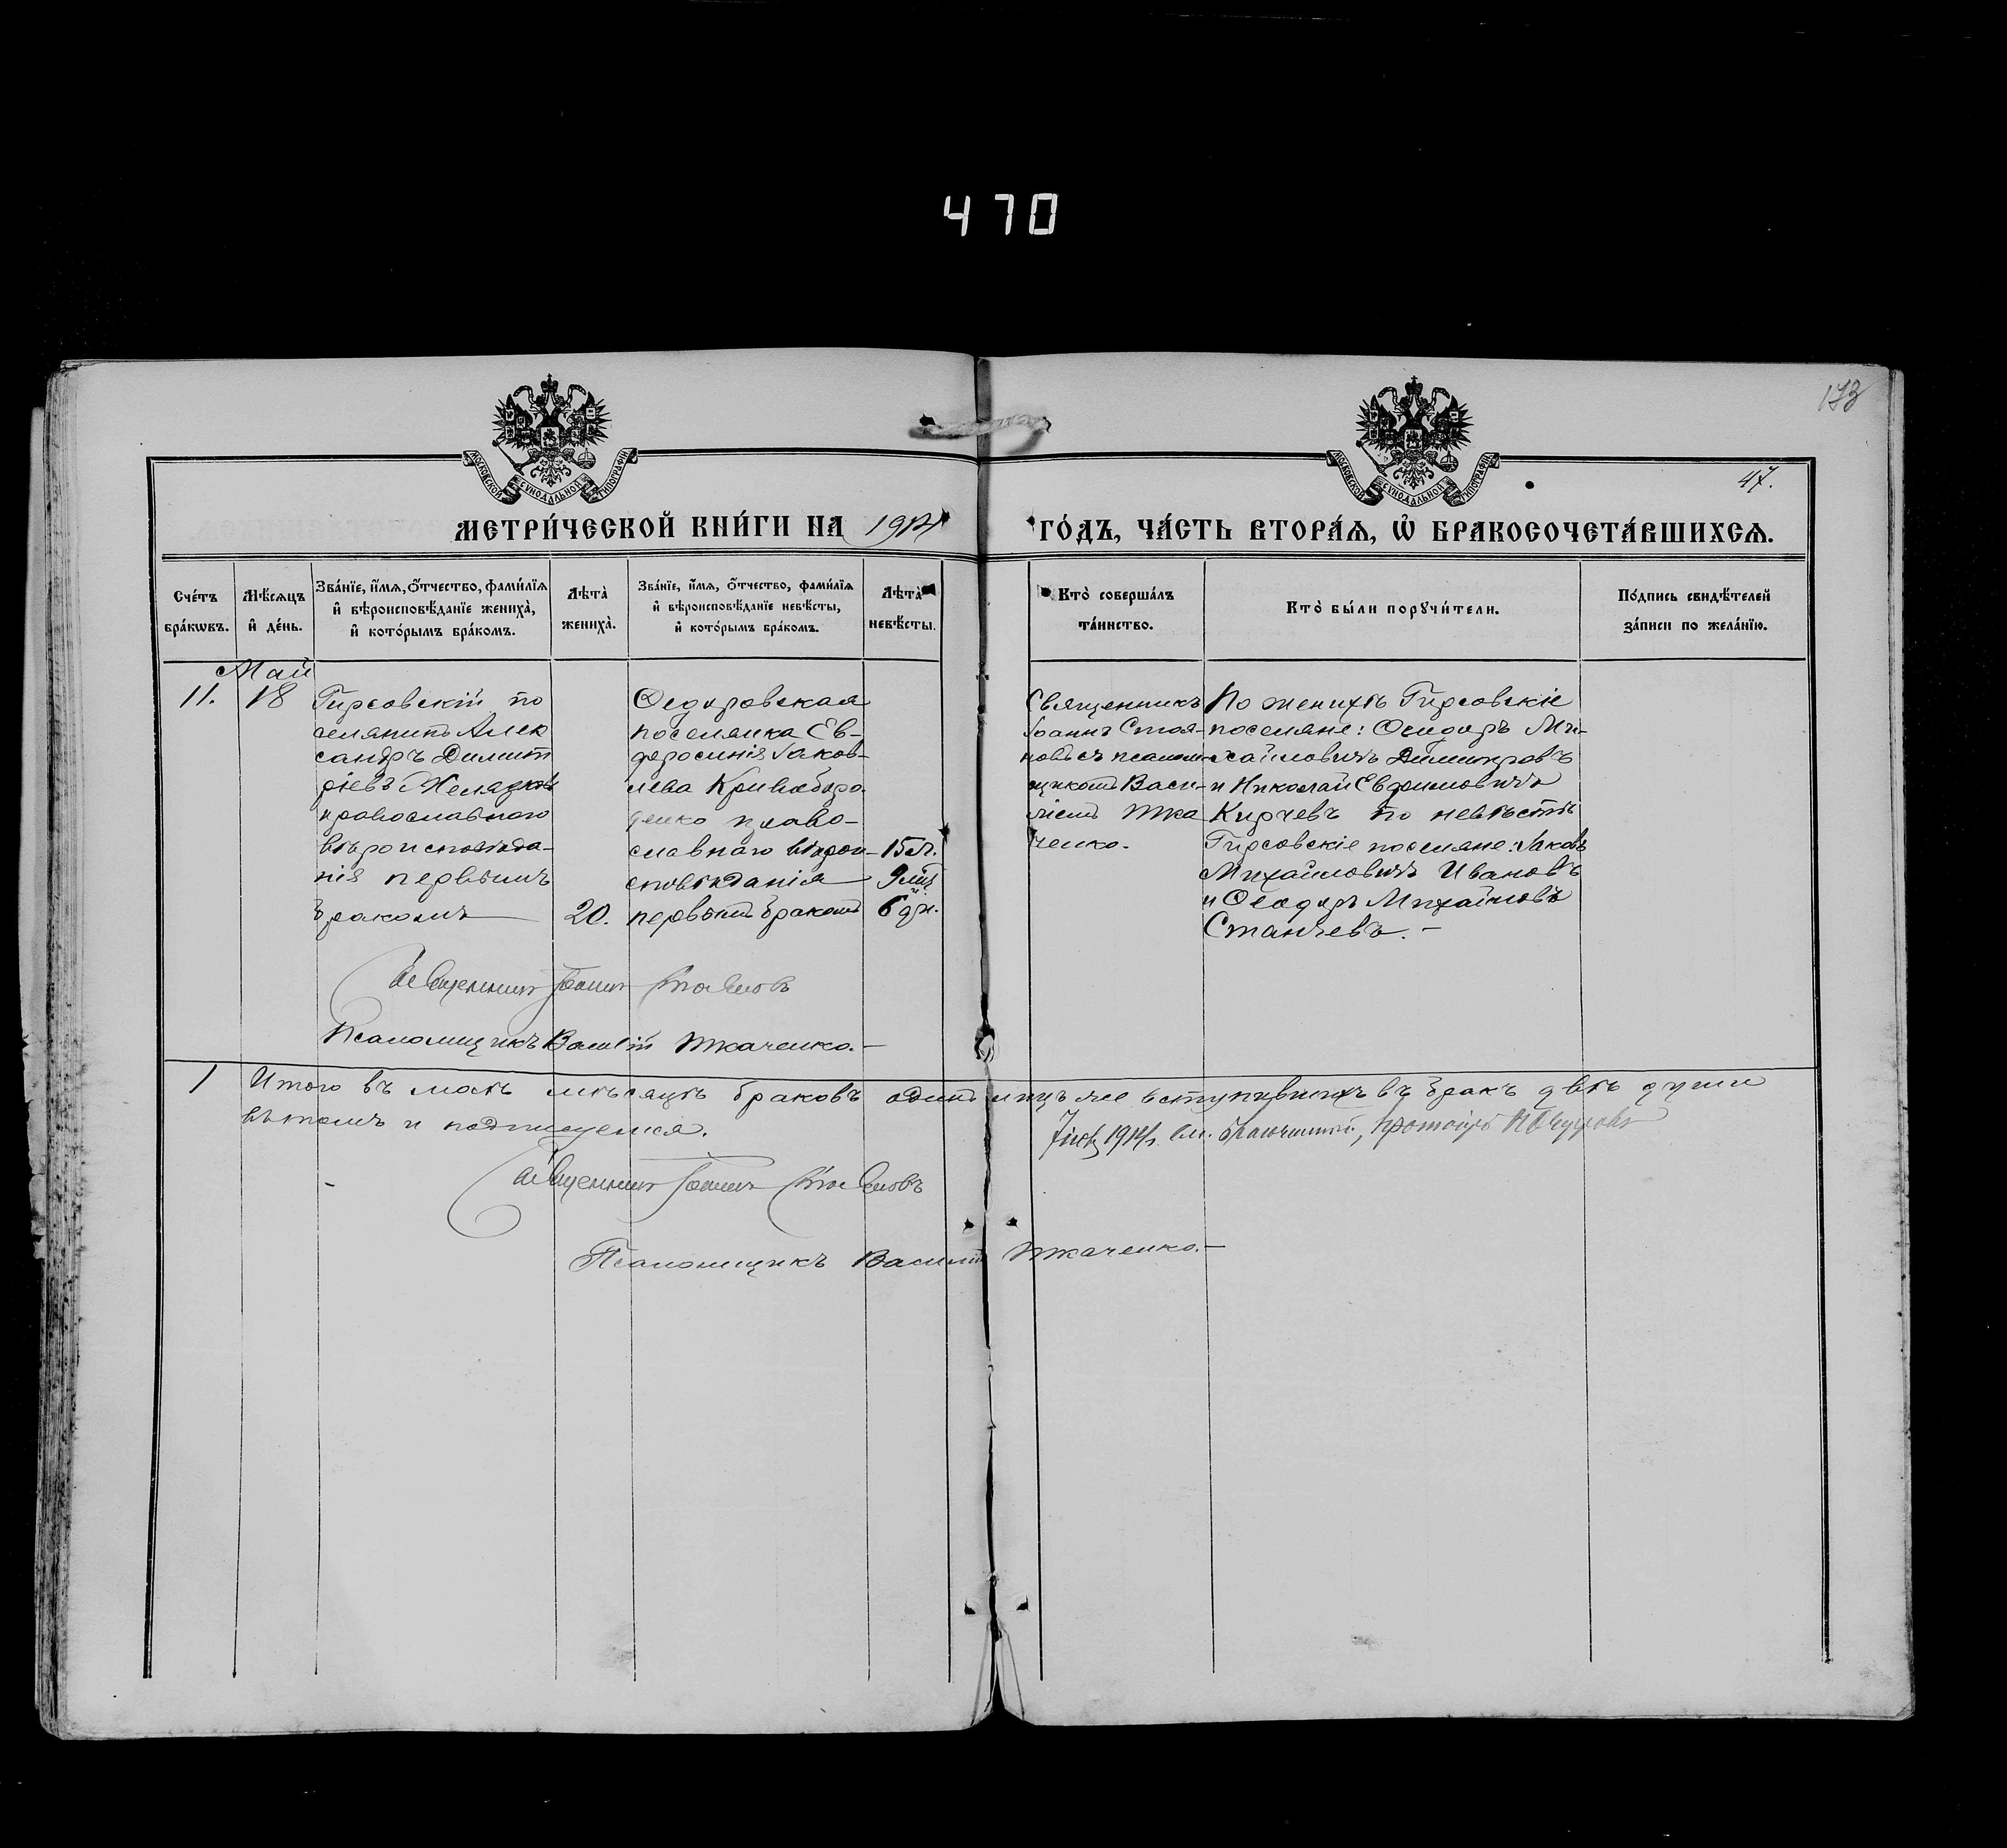 470
173
МОСКОВСКОЙ СУНОДАЛЬНОЙ ТИПОГРАФІИ
МОСКОВСКОЙ СУНОДАЛЬНОЙ ТИПОГРАФІИ
47.
МЕТРИ́ЧЕСКОЙ КНИ́ГИ НА 1914
ГО́ДЪ, ЧА́СТЬ ВТОРА́Ѧ, Ѽ БРАКОСОЧЕТА́ВШИХСѦ.
Сче́тъ
бра́кѡвъ.
Мѣ́сѧцъ
и҆ де́нь.
Зва́нїе, и҆́мѧ, ѻ҆́тчество, фами́лїѧ
и҆ вѣроисповѣ́данїе жениха̀,
и҆ кото́рымъ бра́комъ.
Лѣта̀
жениха̀.
Зва́нїе, и҆́мѧ, ѻ҆́тчество, фами́лїѧ
и҆ вѣроисповѣ́данїе невѣ́сты,
и҆ кото́рымъ бра́комъ.
Лѣта̀
невѣ́сты.
Кто̀ соверша́лъ
та́инство.
Кто̀ бы́ли порꙋчи́тели.
По́дпись свидѣ́телей
за́писи по жела́нїю.
Май
11.
18
Гирсовскій по
селянинъ Алек
сандръ Димит
ріевъ Желязковъ
православного
вѣроисповѣда-
нія первымъ
бракомъ
20.
Ѳедоровская
поселянка Ев-
фросинія Іаков-
лева Кривоборо
денко право-
славнаго вѣрои-
сповѣданія
первымъ бракомъ
15 л.
9 мц.
и
6 дн.
Священникъ
Іоаннъ Стоя-
новъ съ псалом-
щикомъ Васи-
ліемъ Тка
ченко.
По женихѣ Гирсовскіе
поселяне: Ѳеодоръ Ми-
хайловичъ Димитровъ
и Николай Евфимовичъ
Кирчевъ по невѣстѣ
Гирсовскіе поселяне: Іаковъ
Михайловичъ Ивановъ
и Ѳеодоръ Михайловъ
Станчевъ. –
Священникъ Іоаннъ Стояновъ
Псаломщикъ Василій Ткаченко. –
1
Итого въ маѣ мѣсяцѣ браковъ одинъ лицъ же вступившихъ въ бракъ двѣ души
въ томъ и подписуемся.
1914 г.
Священникъ Іоаннъ Стояновъ
Псаломщикъ Василій Ткаченко. –